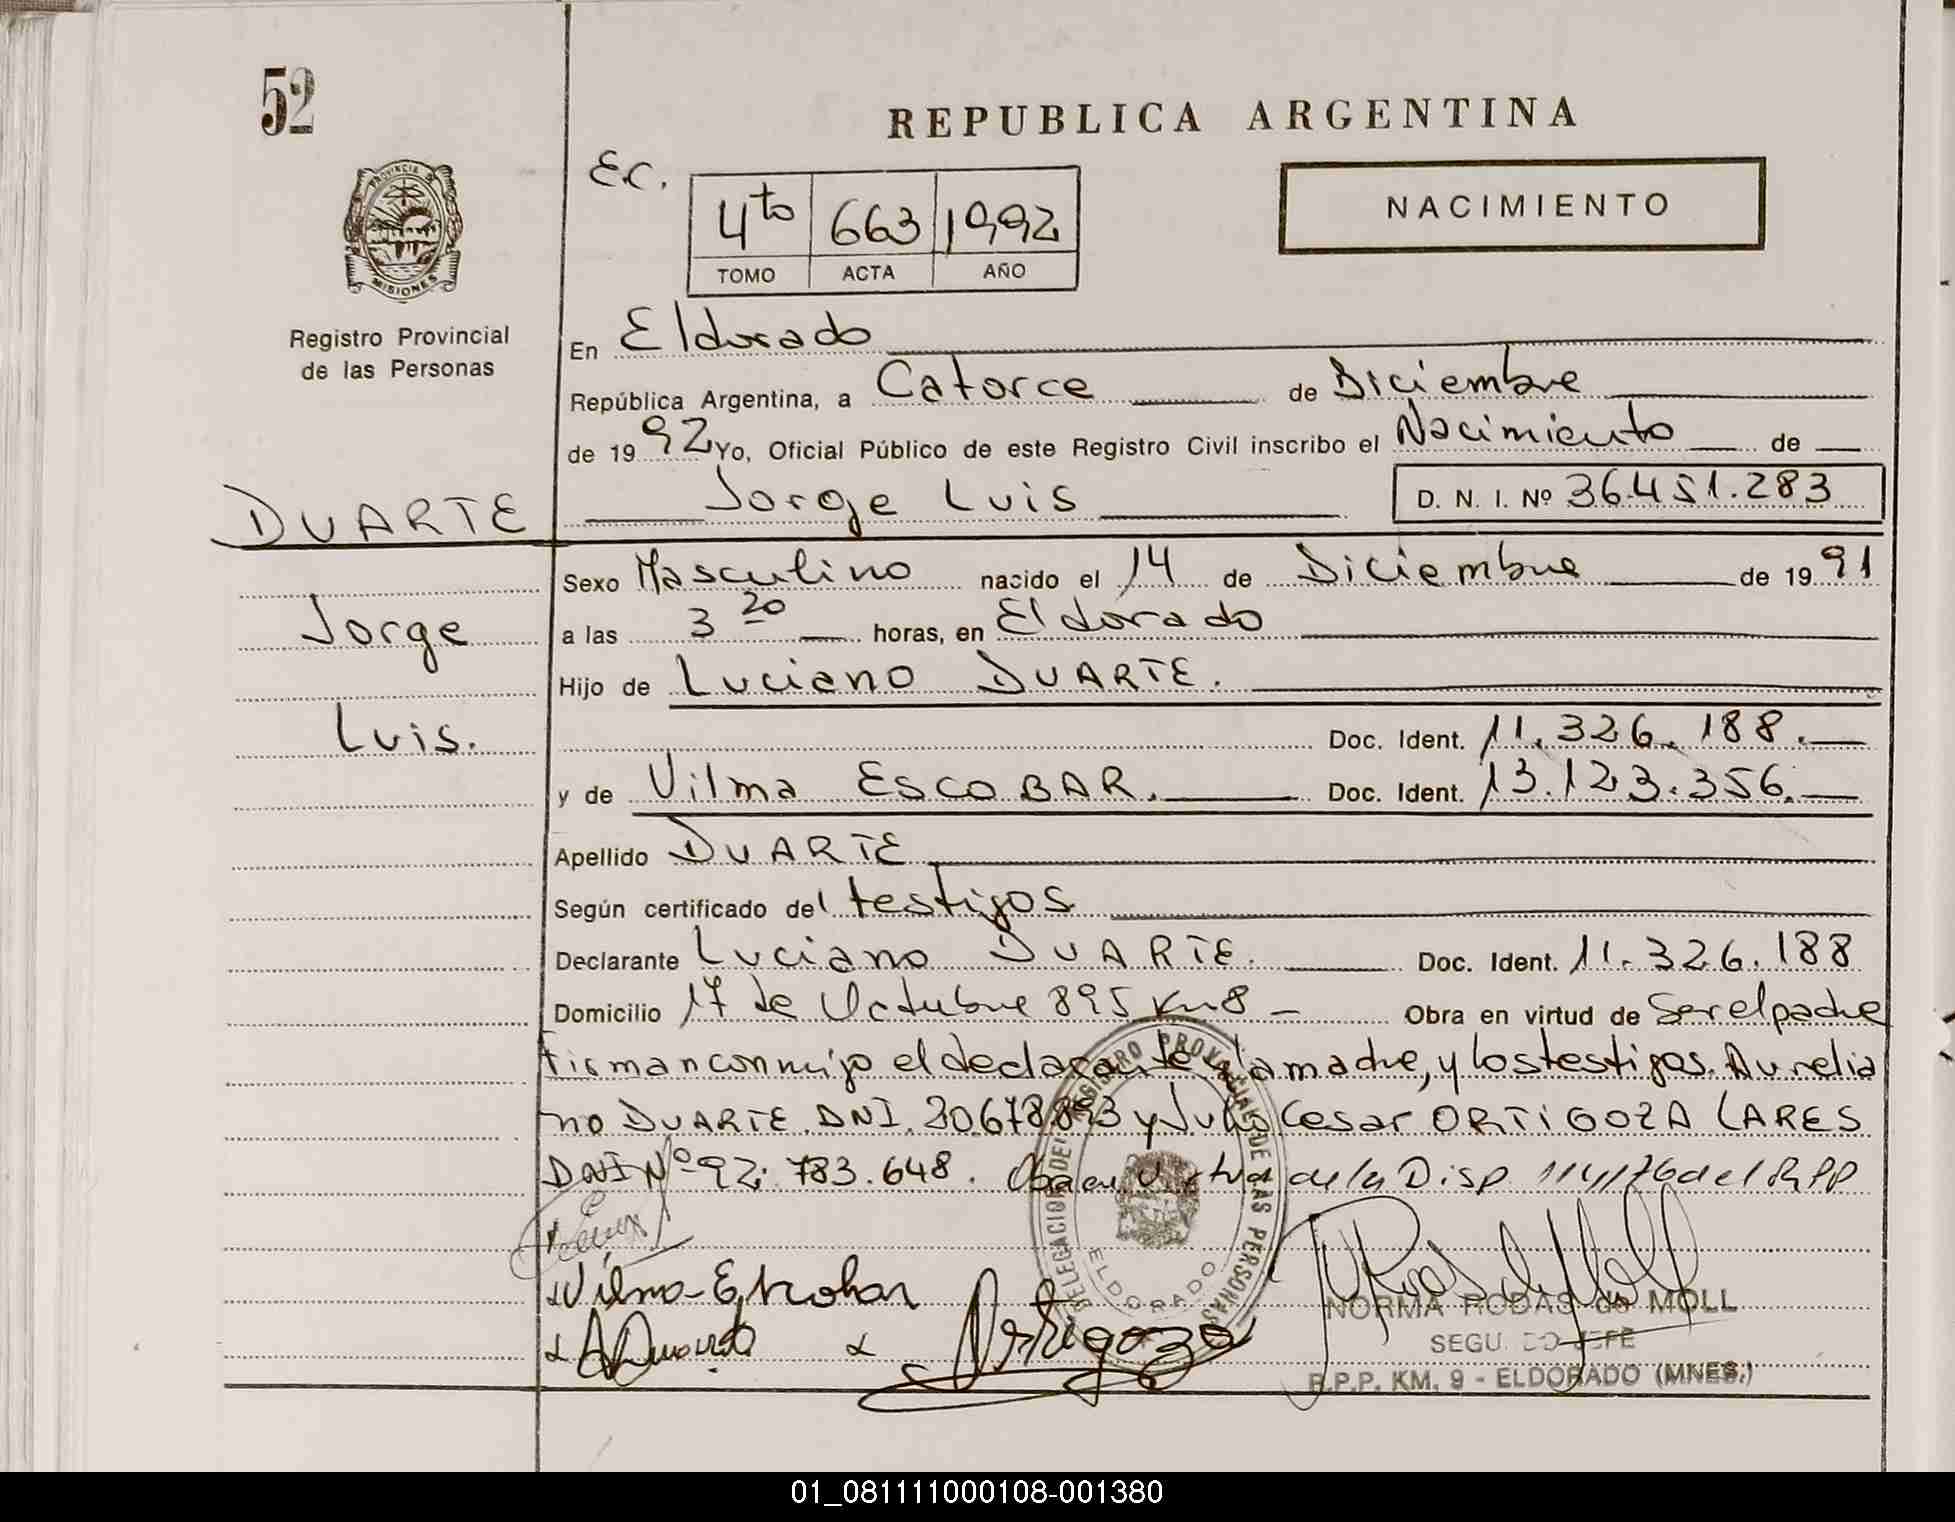 52
REPUBLICA ARGENTINA
PROVINCIA D
MISIONES
Registro Provincial
de las Personas
E.C.
4to 663 1992
TOMO ACTA AÑO
NACIMIENTO
En Eldorado
República Argentina, a Catorce de Diciembre
de 1992 Yo, Oficial Público de este Registro Civil inscribo el Nacimiento de
DUARTE
Jorge Luis D. N. I. Nº 36.451.283
Sexo Masculino nacido el 14 de Diciembre de 1991
Jorge
a las 3 20 horas, en Eldorado
Hijo de Luciano DUARTE.
Luis.
Doc. Ident. 11.326.188.
y de Vilma ESCOBAR. Doc. Ident. 13.123.356.
Apellido DUARTE
Según certificado del testigos
Declarante Luciano DUARTE. Doc. Ident. 11.326.188
Domicilio 17 de Octubre 895 Km 8 - Obra en virtud de Ser el padre
Firman conmigo el declarante, la madre, y los testigos. Aurelia
no DUARTE. DNI. 20.678.893 y Julio Cesar ORTIGOZA LARES
DNI Nº 92.783.648. Obra en virtud de la Disp. 114/76 del RPP
Vilma-Escobar
ADuarte
Ortigoza
DELEGACION DEL REGISTRO PROVINCIAL DE LAS PERSONAS
ELDORADO
NORMA RODAS de MOLL
SEGUNDO JEFE
R.P.P. KM. 9 - ELDORADO (MNES.)
01_081111000108-001380